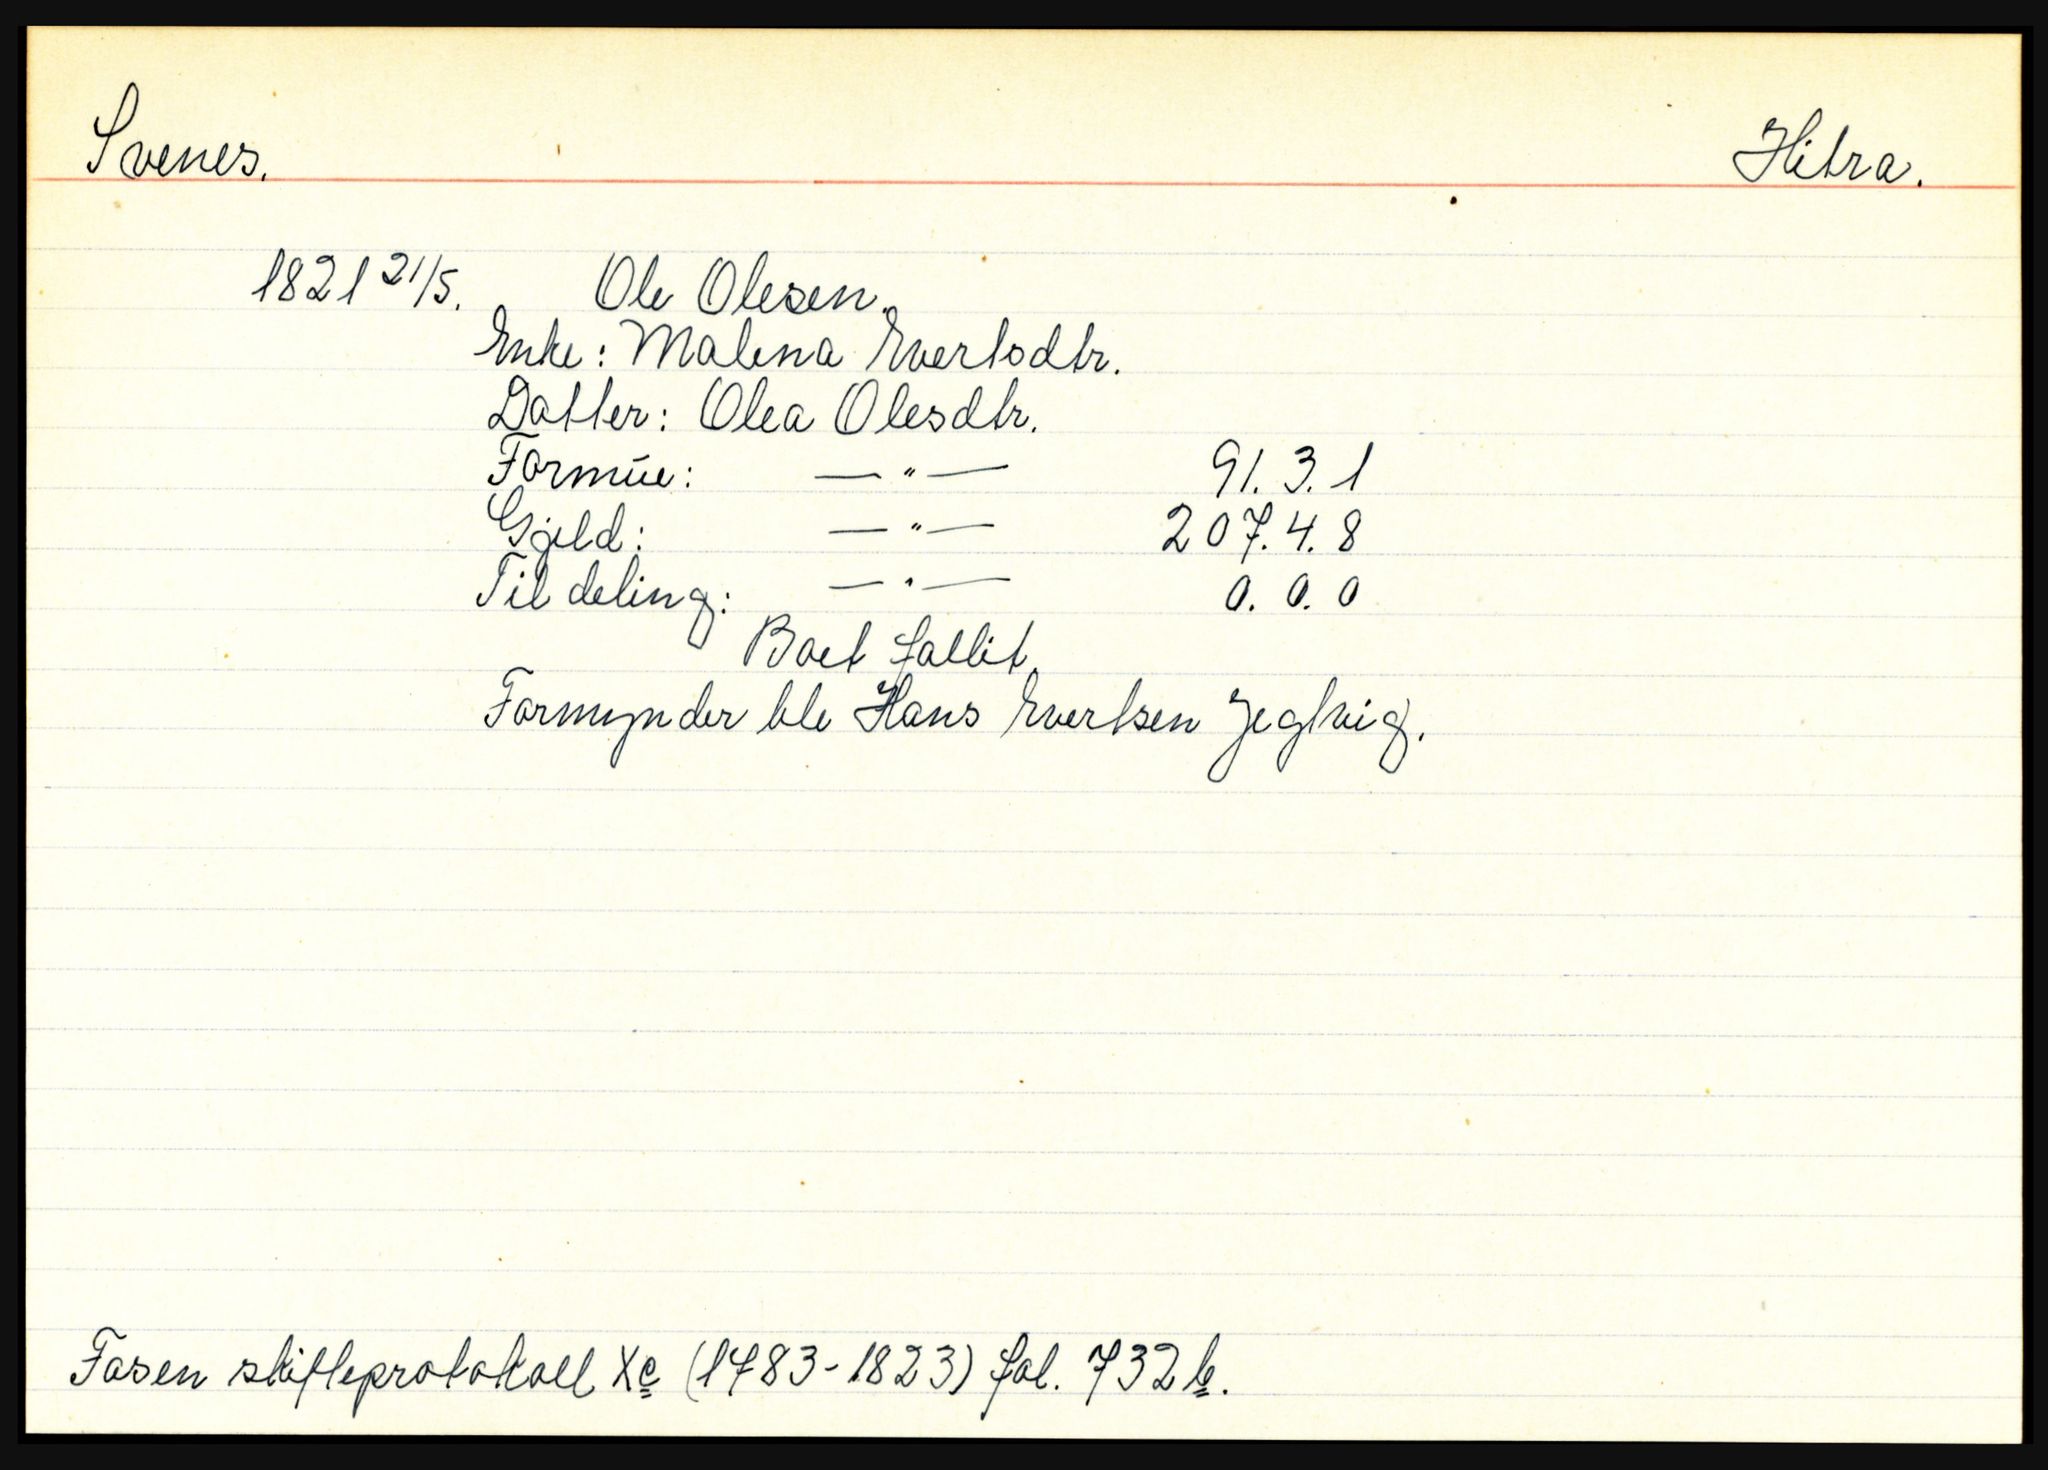 Svenes. Hitra.
1821 21/5. Ole Olesen.
Enke: Malena Evertsdtr.
Datter: Olea Olesdtr.
Formue: —"— 91. 3. 1
Gjeld: —"— 207. 4. 8
Til deling: —"— 0. 0. 0
Boet fallit.
Formynder ble Hans Evertsen Jegtvig.
Fosen skifteprotokoll Xc (1783-1823) fol. 732b.